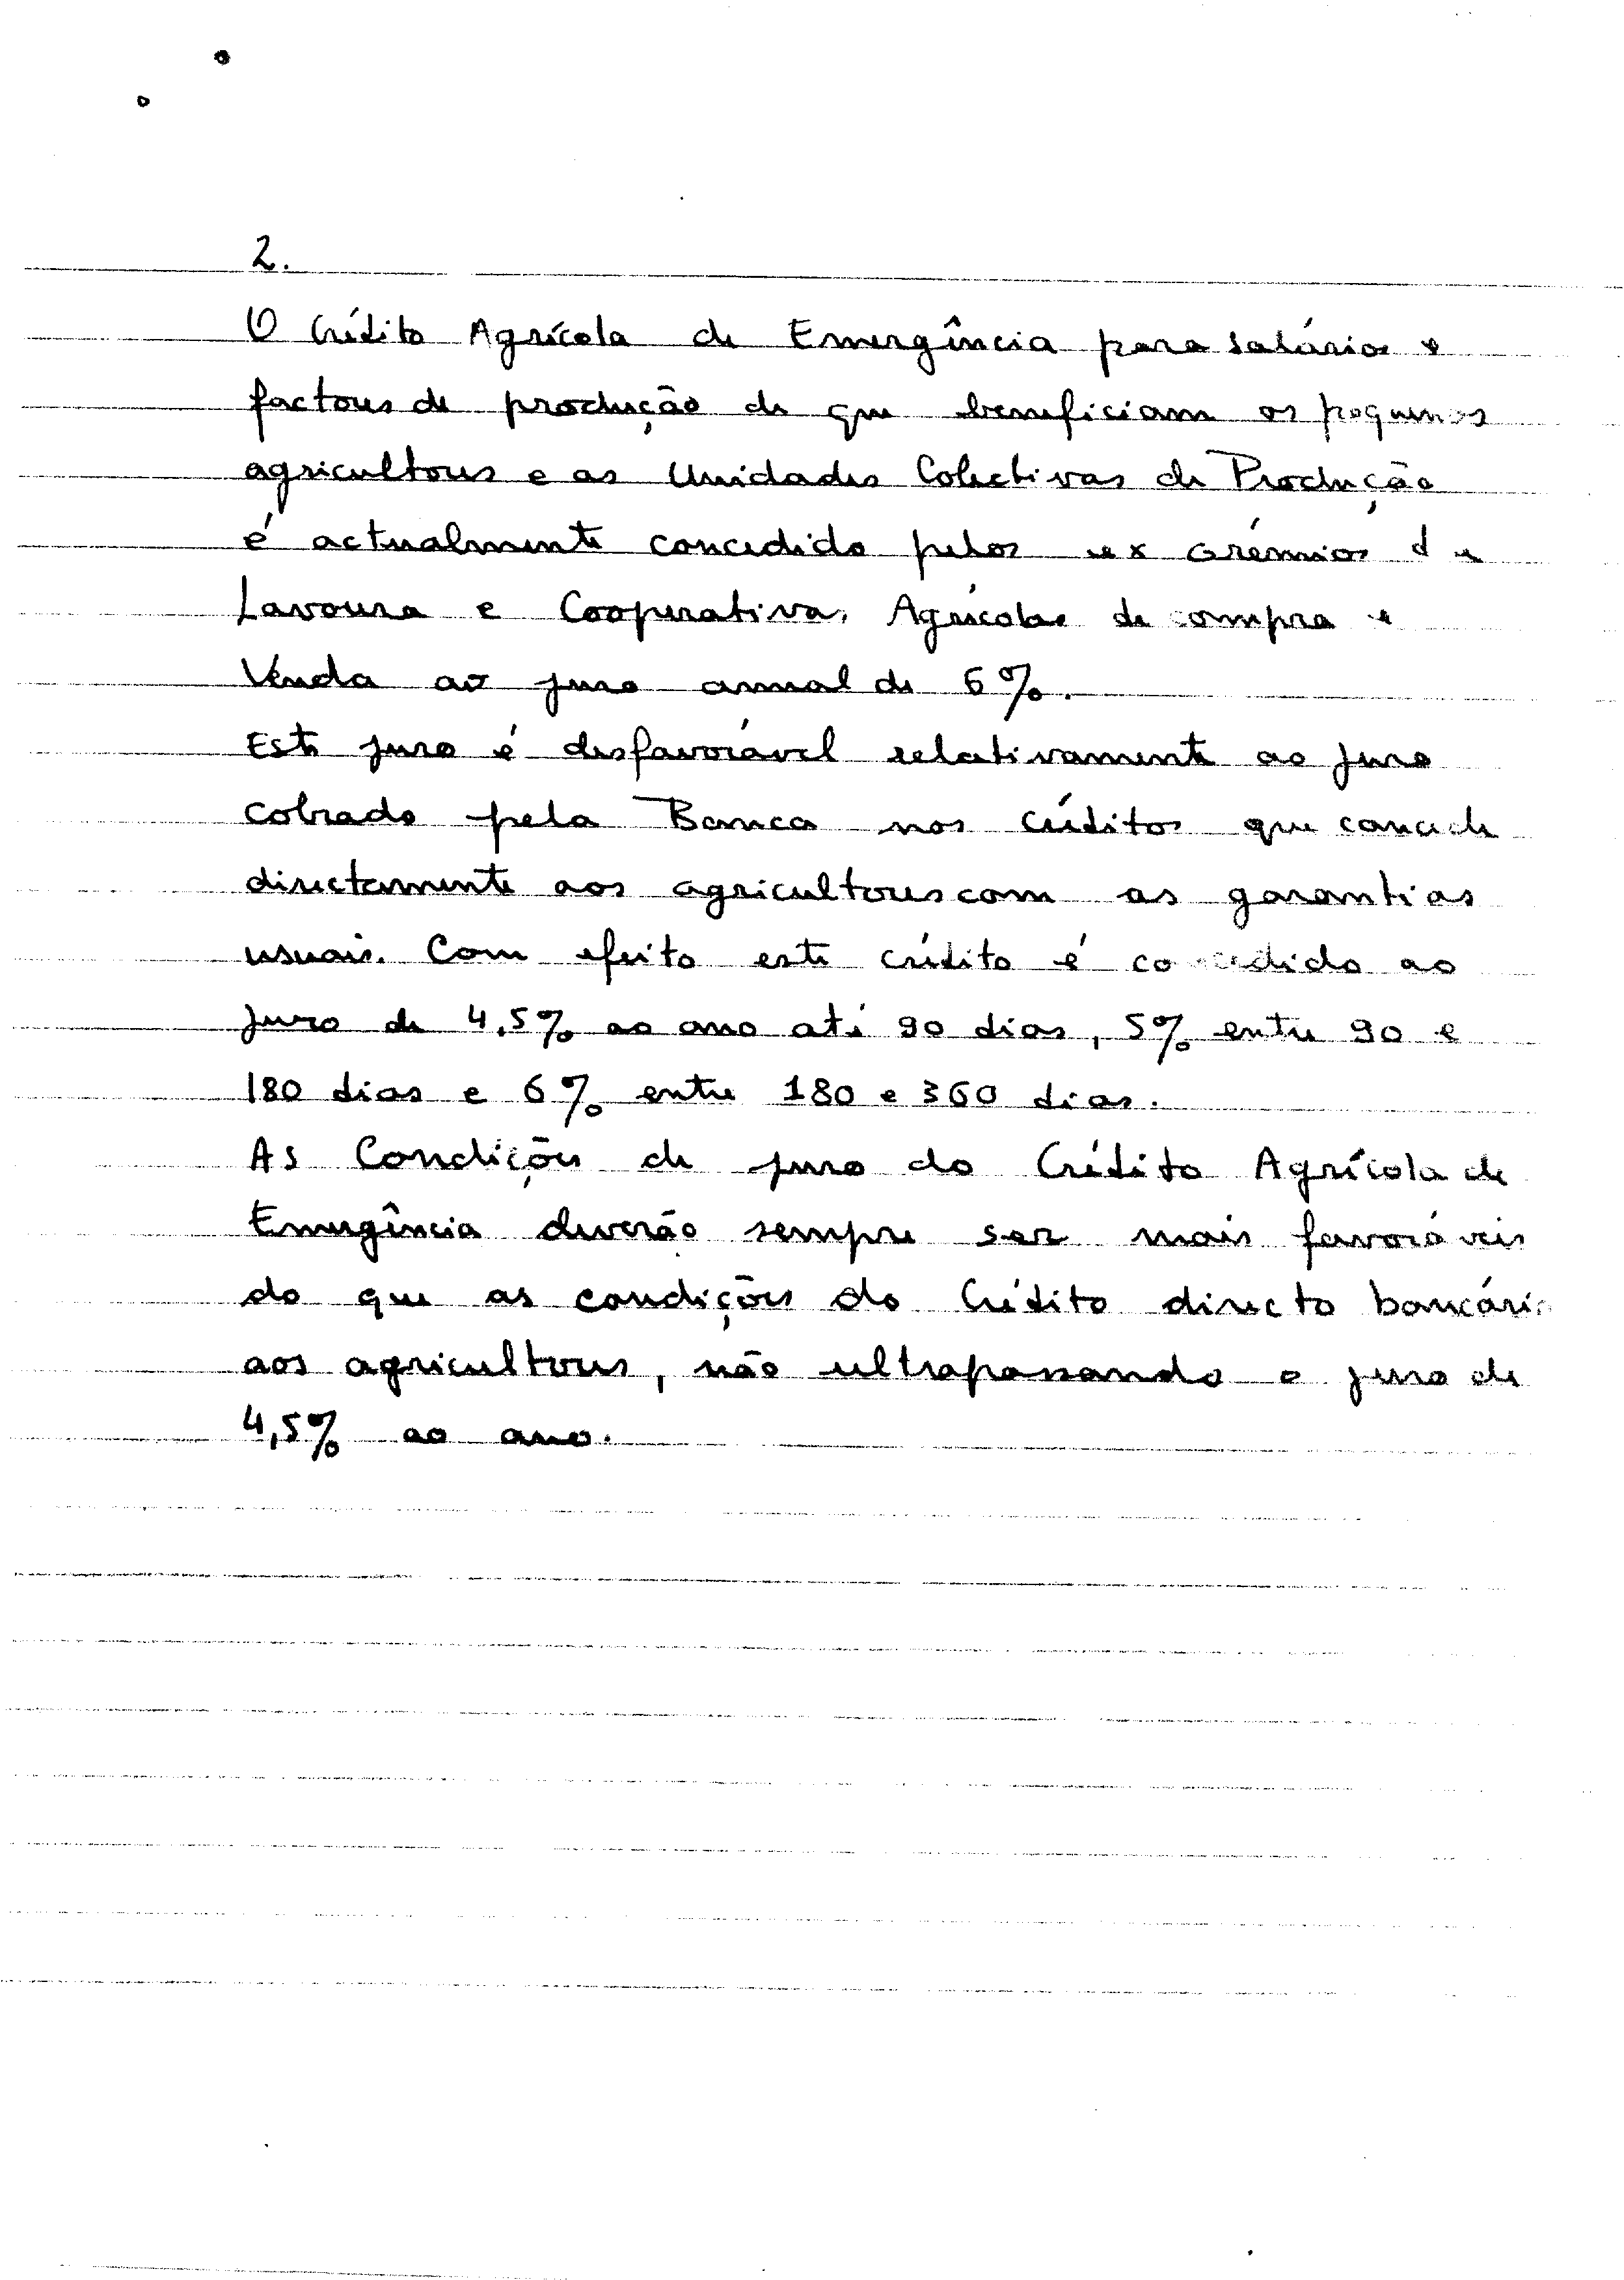 2.
O Crédito Agrícola de Emergência para salários e
factores de produção de que beneficiam os pequenos
agricultores e as Unidades Colectivas de Produção
é actualmente concedido pelos ex Grémios de
Lavoura e Cooperativas Agrícolas de compra e
Venda ao juro annal de 6%.
Este juro é desfavorável relativamente ao juro
cobrado pela Banca nos créditos que concede
directamente aos agricultores com as garantias
usuais. Com efeito este crédito é concedido ao
juro de 4,5% ao ano até 90 dias, 5% entre 90 e
180 dias e 6% entre 180 e 360 dias.
As Condições de juro do Crédito Agrícola de
Emergência deverão sempre ser mais favoráveis
do que as condições do Crédito directo bancário
aos agricultores, não ultrapassando o juro de
4,5% ao ano.